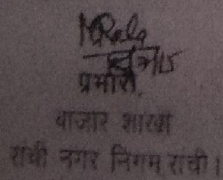 प्रभारी,
बाजार शाखा
रांची नगर निगम, रांची।